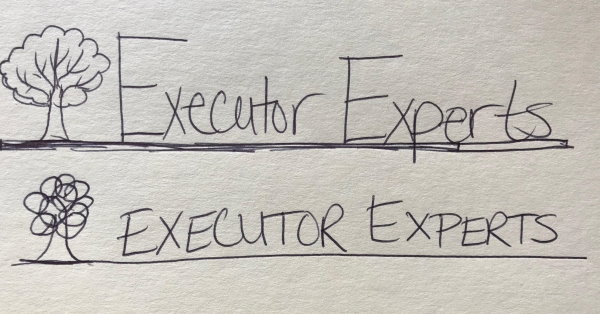 Executor Experts
EXECUTOR EXPERTS